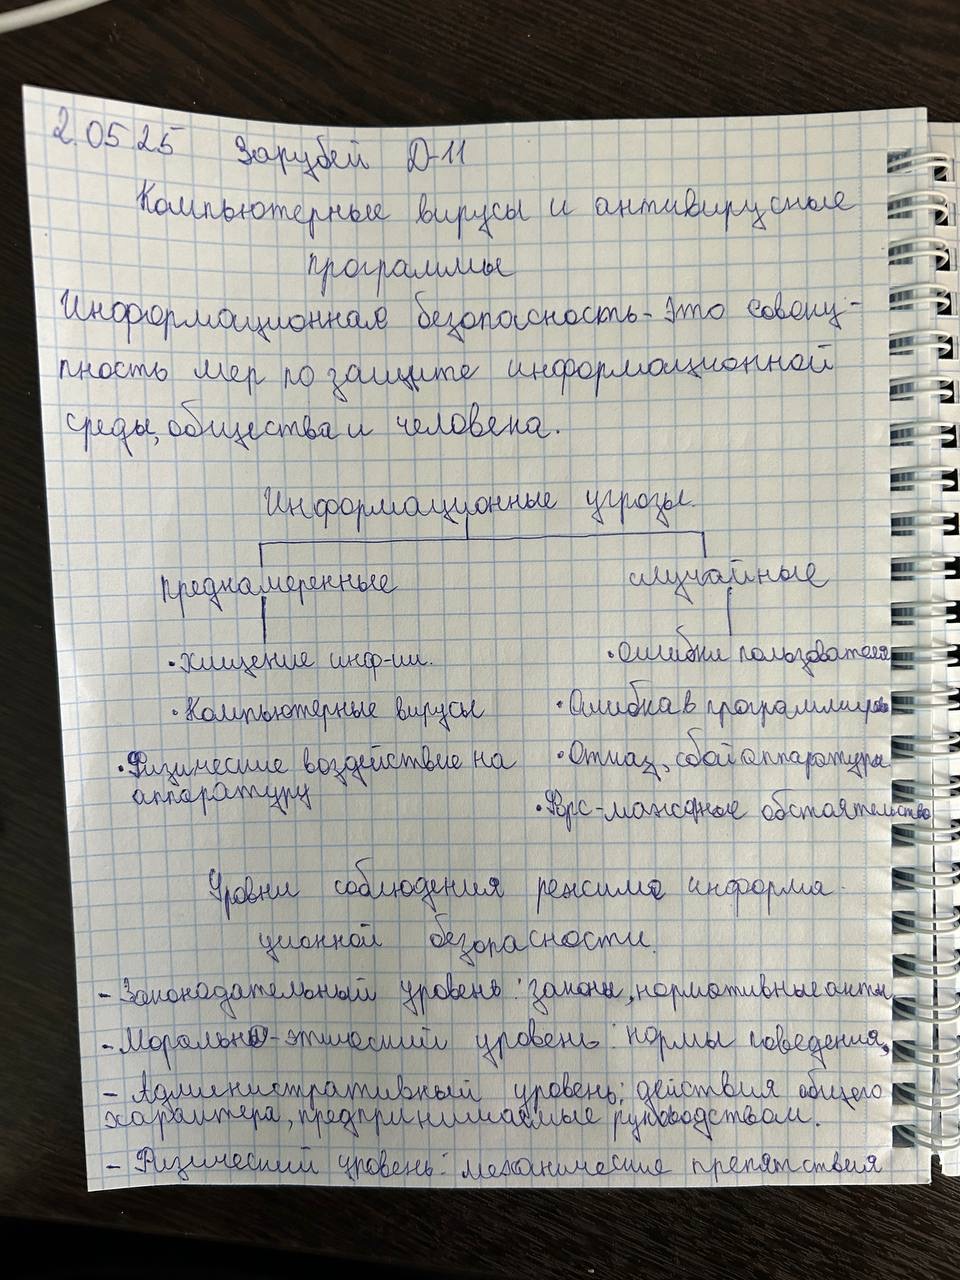 2.05 25 Зарубей Д-11
Компьютерные вирусы и антивирусные
программы
Информационная безопасность - это совоку-
пность мер по защите информационной
среды, общества и человека.
Информационные угрозы.
преднамеренные случайные
• хищение инф-ии. • Ошибки пользователя
• Компьютерные вирусы • Ошибка в программиров
• Физические воздействие на • Отказ, сбой аппаратура
аппаратуру
• Форс-мажорное обстоятельство
Уровни соблюдения режима информа-
ционной безопасности.
- Законодательный уровень: законы, нормативные акты
- Морально-этический уровень: нормы поведения,
- Административный уровень: действия общего
характера, предпринимаемые руководством.
- Физический уровень: механические препятствия